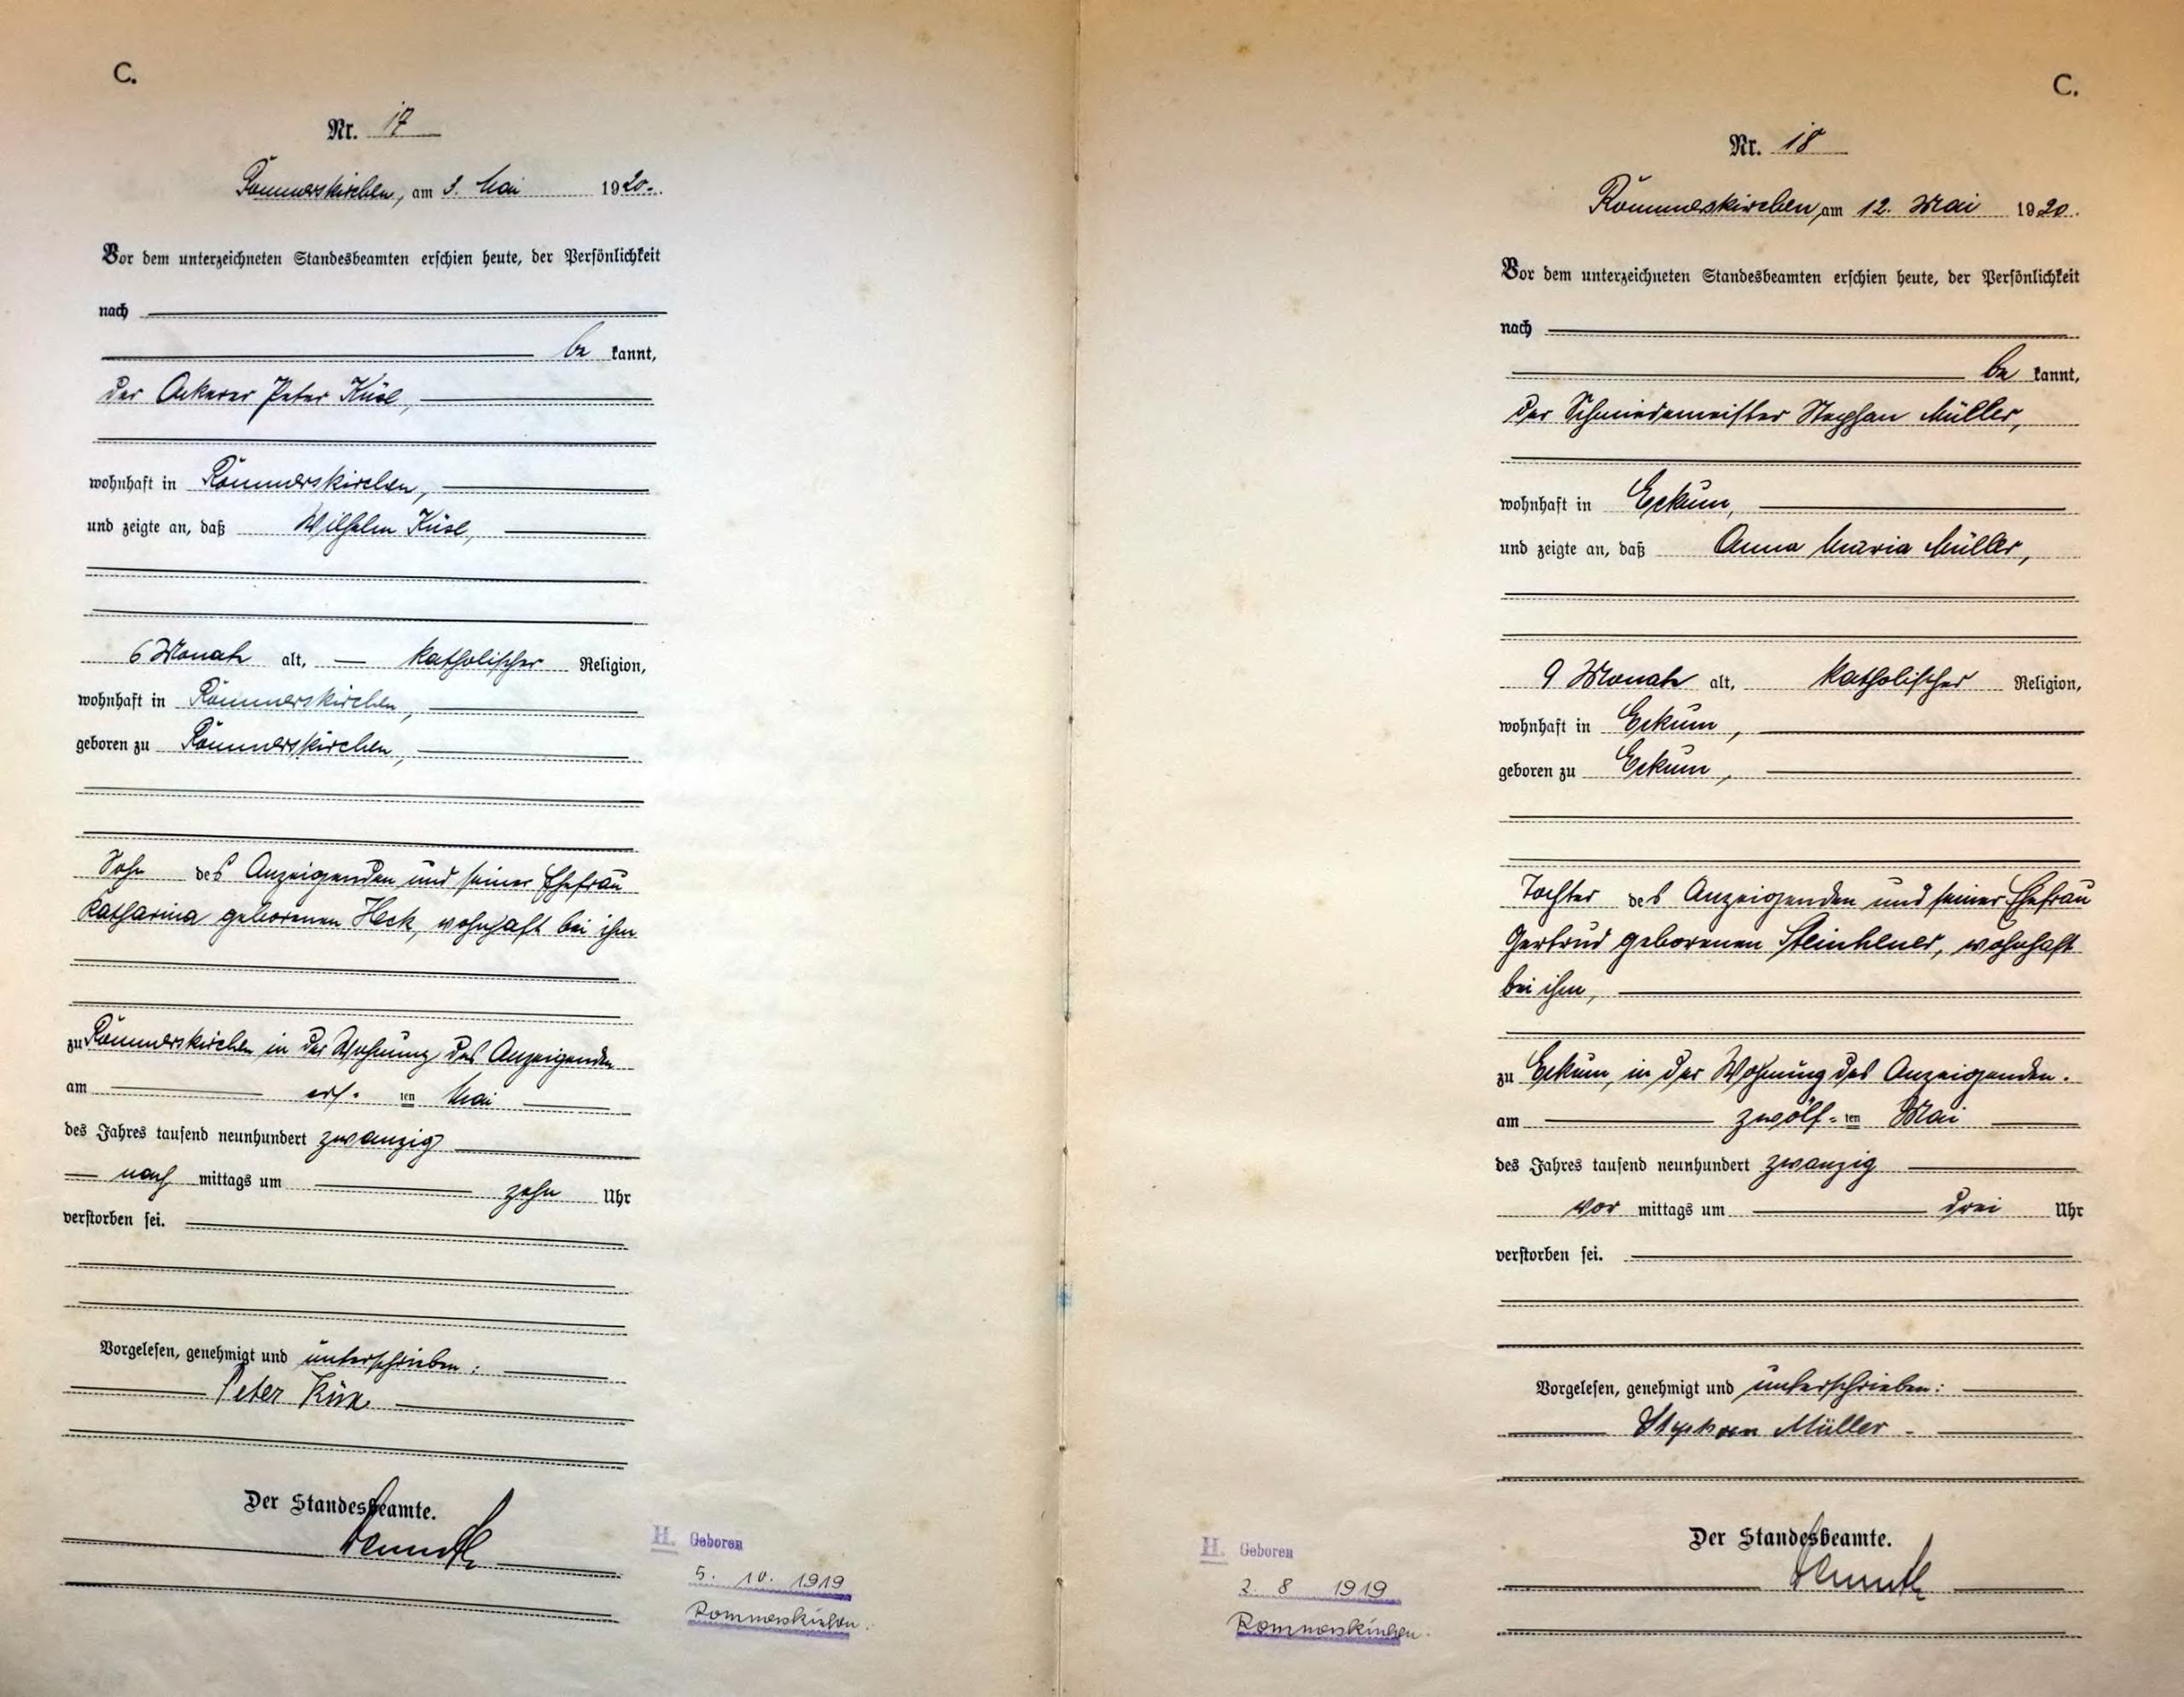 C.
Nr. 17
Rommerskirchen, am 3. Mai 1920.
Vor dem unterzeichneten Standesbeamten erschien heute, der Persönlichkeit
nach
be kannt,
der Ackerer Peter
wohnhaft in Rommerskirchen,
und zeigte an, daß Wilhelm
6 Monate alt, katholischer Religion,
wohnhaft in Rommerskirchen,
geboren zu Rommerskirchen,
Sohn des Anzeigenden und seiner Ehefrau
Katharina geborenen Heck, wohnhaft bei ihm
zu Rommerskirchen in der Wohnung des Anzeigenden
am ten Mai
des Jahres tausend neunhundert zwanzig
nach mittags um zehn Uhr
verstorben sei.
Vorgelesen, genehmigt und unterschrieben:
Peter
Der Standesbeamte.
H. Geboren
5. 10. 1919
Rommerskirchen.
C.
Nr. 18
Rommerskirchen, am 12. Mai 1920.
Vor dem unterzeichneten Standesbeamten erschien heute, der Persönlichkeit
nach
be kannt,
der Schmiedemeister Stephan Müller,
wohnhaft in Eckum,
und zeigte an, daß Anna Maria Müller,
9 Monate alt, katholischer Religion,
wohnhaft in Eckum,
geboren zu Eckum,
Tochter des Anzeigenden und seiner Ehefrau
Gertrud geborenen wohnhaft
bei ihm,
zu Eckum, in der Wohnung des Anzeigenden.
am zwölf-ten Mai
des Jahres tausend neunhundert zwanzig
vor mittags um drei Uhr
verstorben sei.
Vorgelesen, genehmigt und unterschrieben:
Stephan Müller
Der Standesbeamte.
H. Geboren
2. 8 1919
Rommerskirchen.